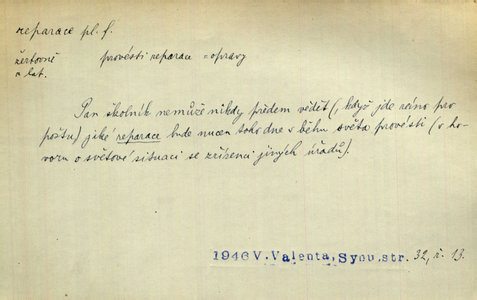 reparace pl. f.
žertovně provésti reparace = opravy
z lat.
Pan školník nemůže nikdy předem vědět (, když jde ráno pro
poštu) jaké reparace bude nucen toho dne v běhu světa provésti (v ho-
voru o světové situaci se zřízenci jiných úřadů).
1946 V. Valenta, Synu, str. 32, ř. 13.